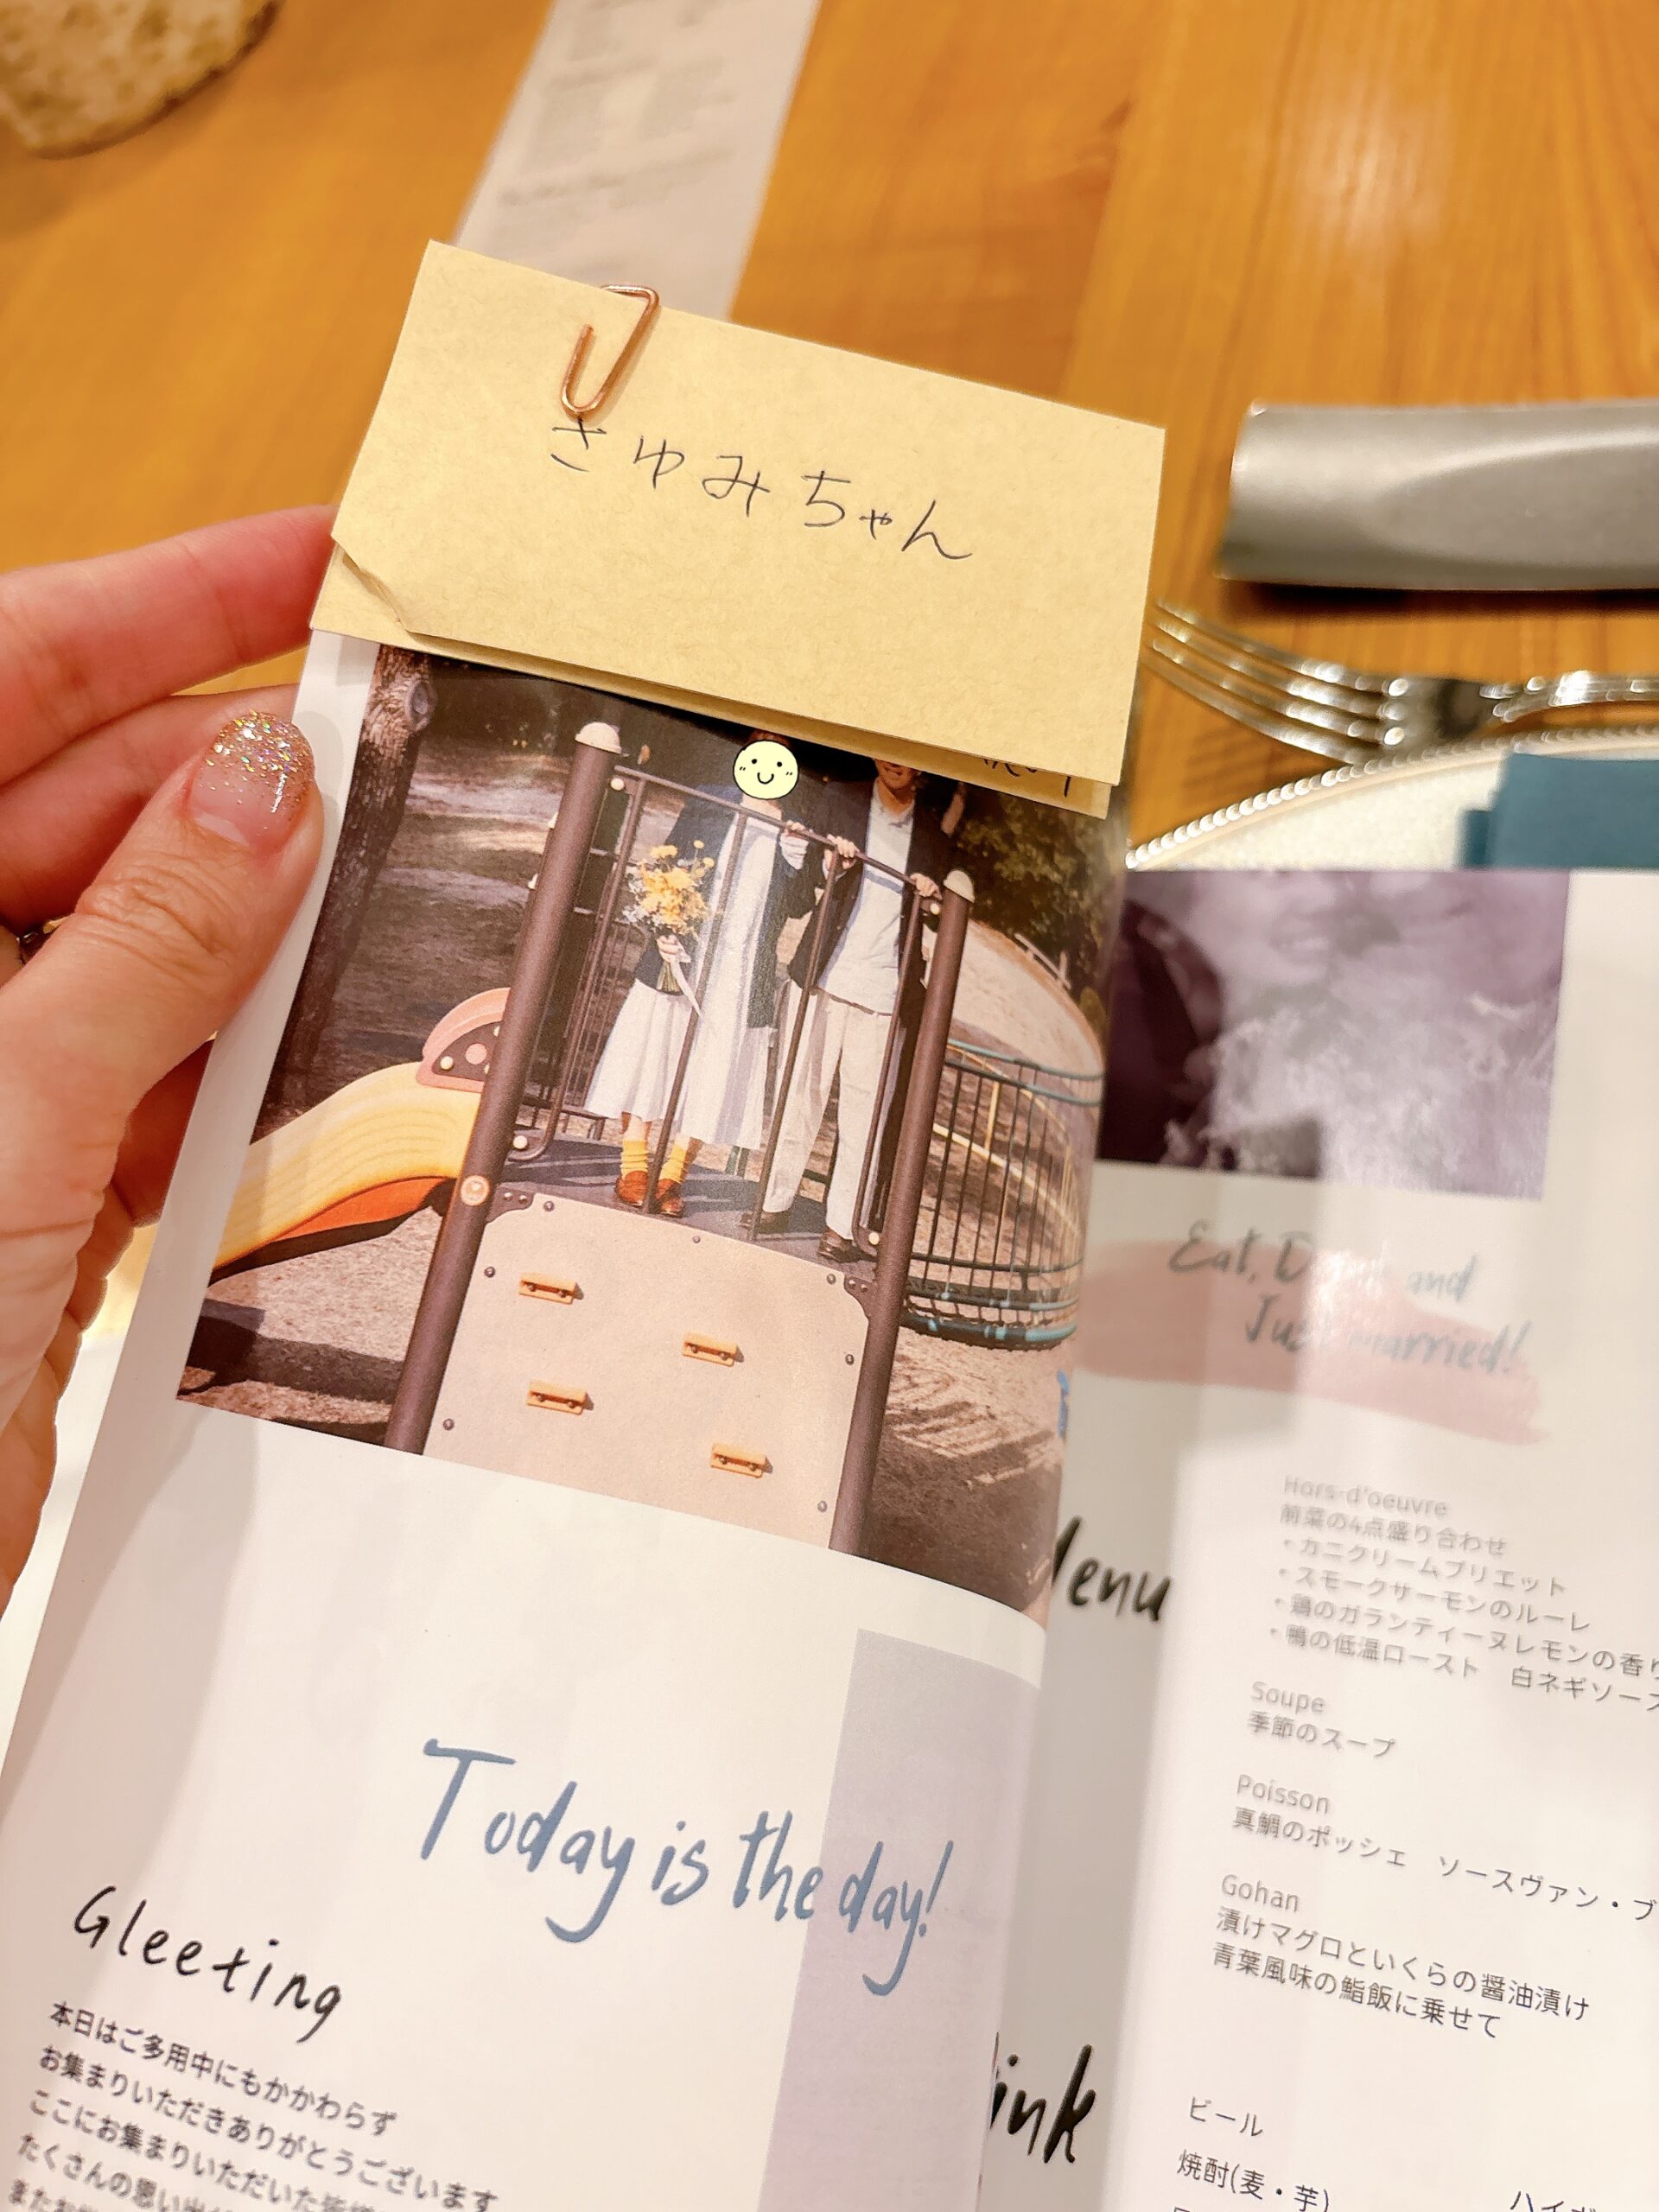 さゆみちゃん
Today is the day!
Gleeting
本日はご多用中にもかかわらず
お集まりいただきありがとうございます
ここにお集まりいただいた皆様
たくさんの思い出
Eat, Drink and
Just married!
Menu
Hors-d'oeuvre
前菜の4点盛り合わせ
・カニクリームブリエット
・スモークサーモンのルーレ
・鶏のガランティーヌレモンの香り
・鴨の低温ロースト 白ネギソース
Soupe
季節のスープ
Poisson
真鯛のポッシェ ソースヴァン・ブ
Gohan
漬けマグロといくらの醤油漬け
青葉風味の鮨飯に乗せて
ink
ビール
焼酎(麦・芋)
ハイボ